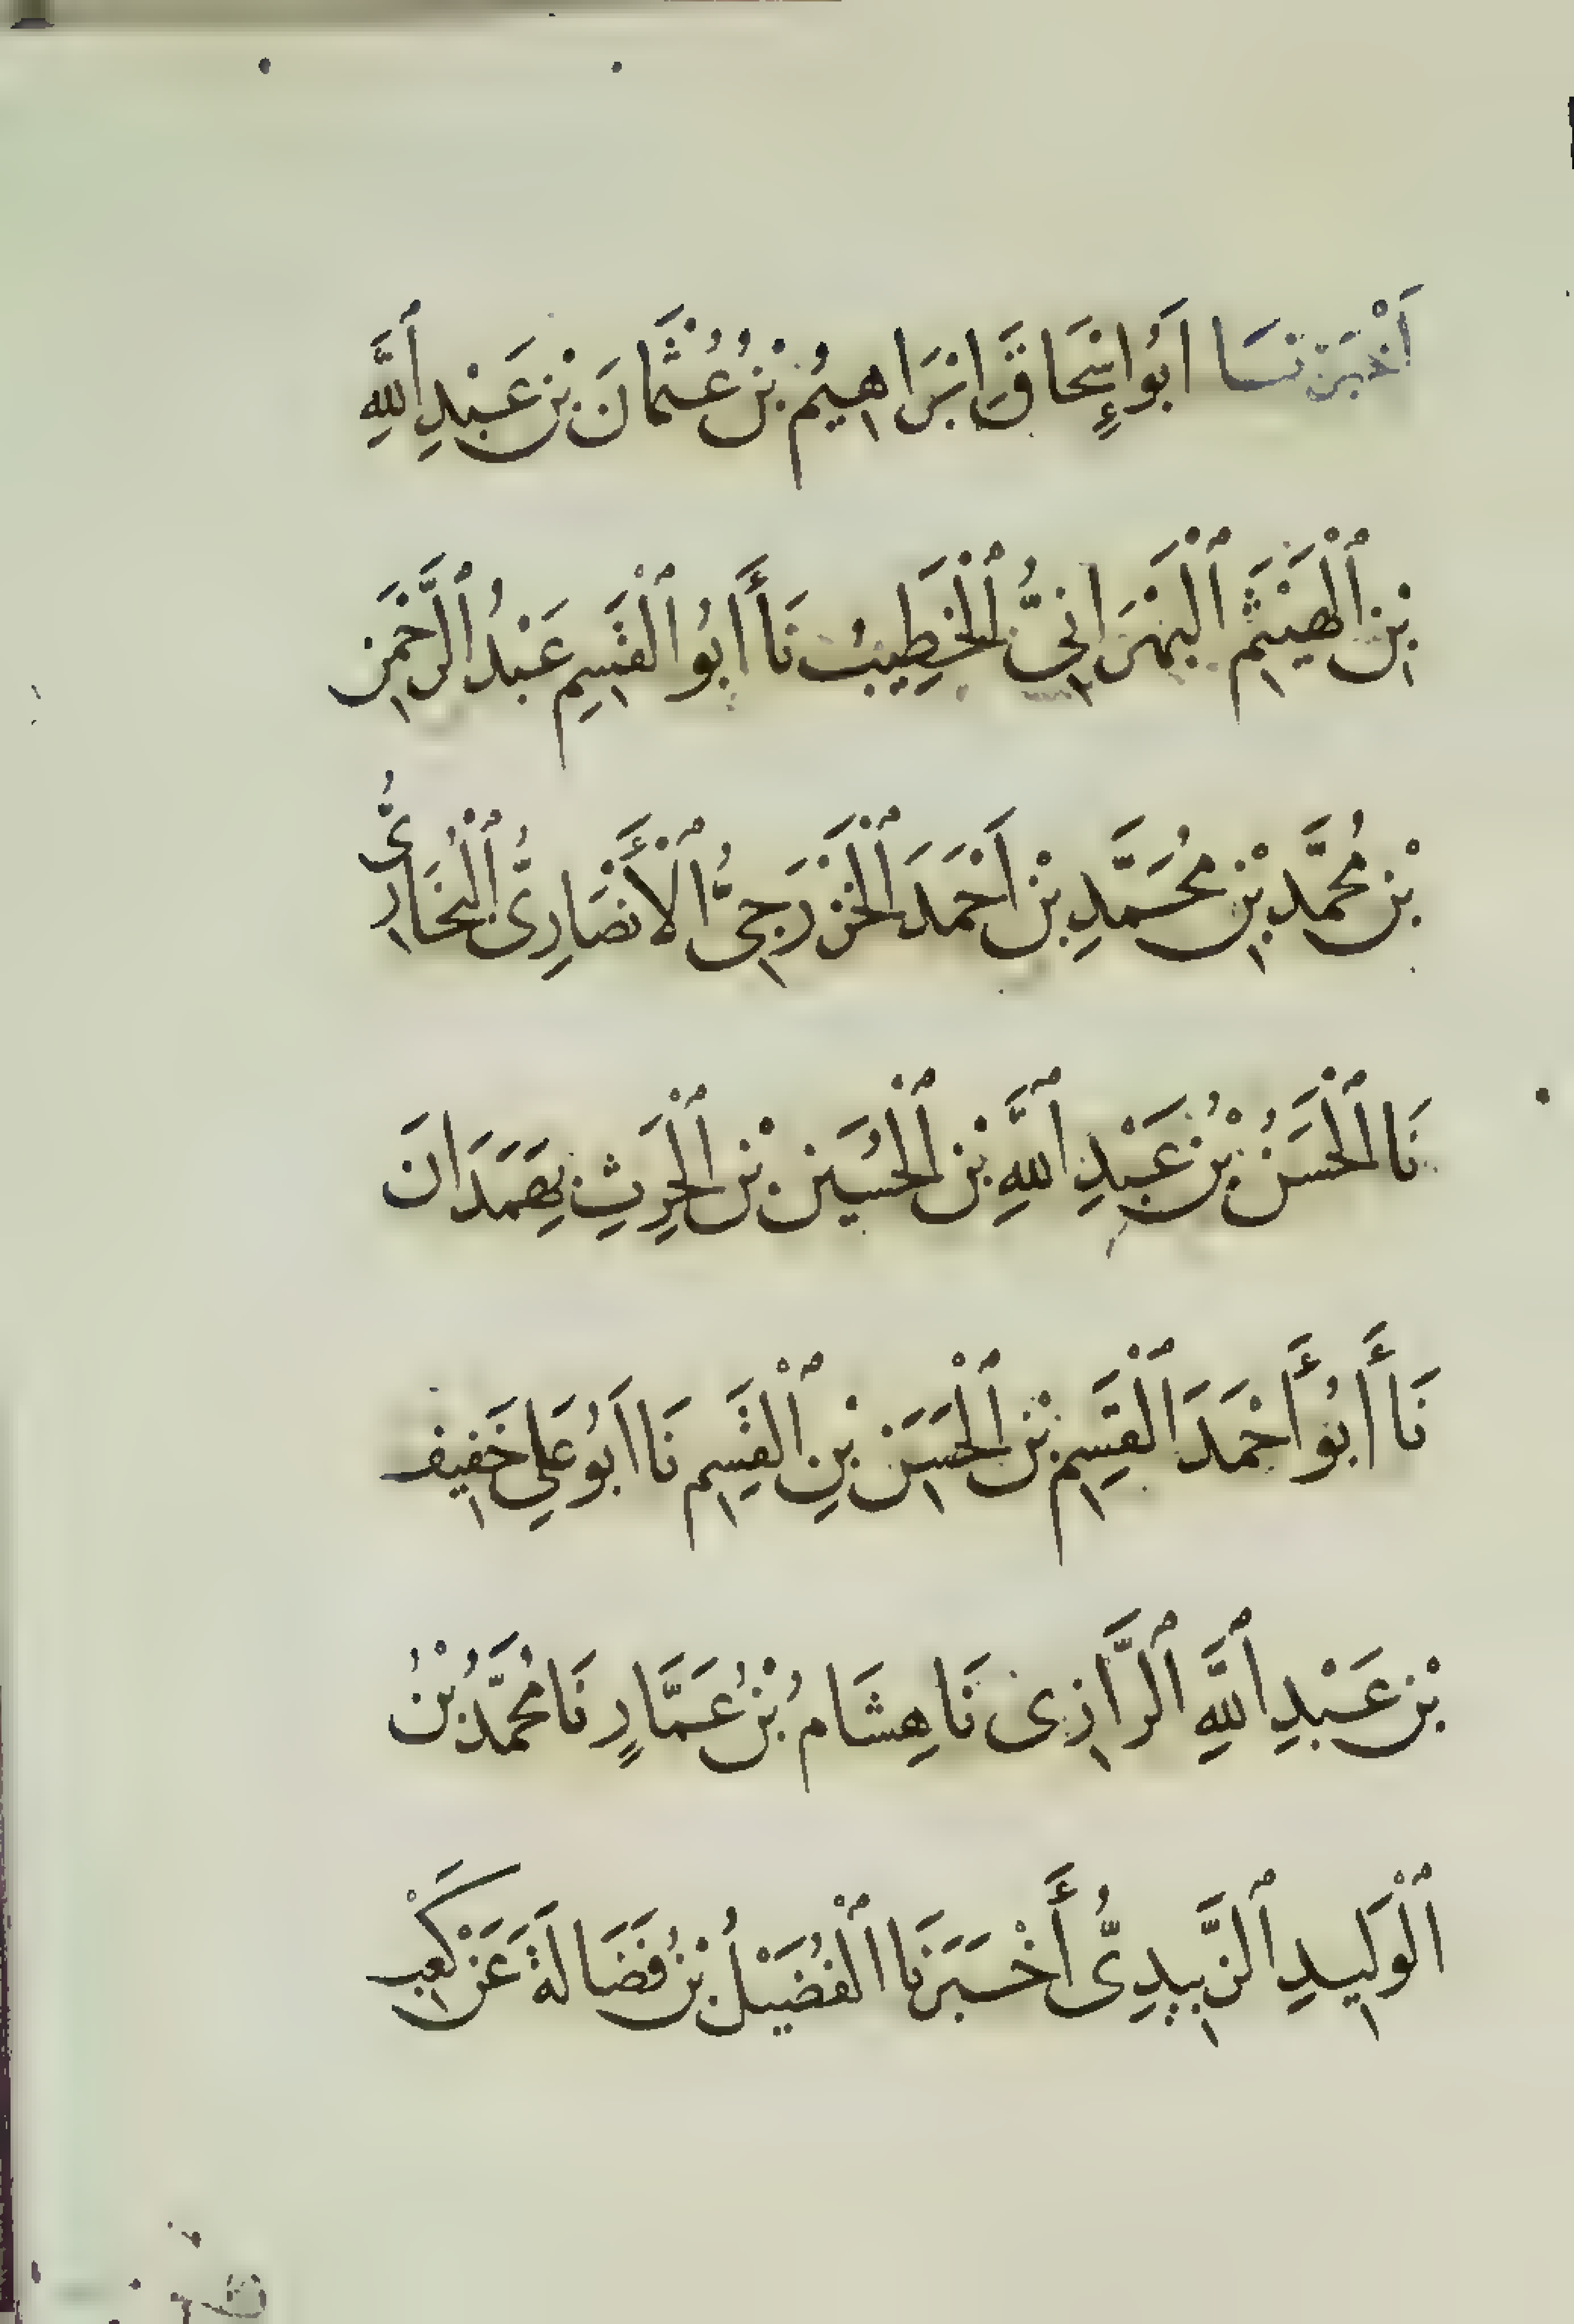 أَخْبَرَنَا أَبُو إِسْحَاقَ ابْرَاهِيمُ بْنُ عُثْمَانَ بْنِ عَبْدِ ٱللَّهِ
بْنِ ٱلْهَيْثَمِ ٱلْبَهْرَانِيُّ ٱلْخَطِيبُ نَا أَبُو ٱلْقَسِمِ عَبْدُ ٱلرَّحْمَنِ
بْنِ مُحَمَّدِ بْنِ مُحَمَّدِ بْنِ اَحْمَدَ ٱلْخَزْرَجِىُّ ٱلْأَنْصَارِىُّ ٱلْبُخَارِىُّ
نَا ٱلْحَسَنُ بْنُ عَبْدِ ٱللَّهِ بْنِ ٱلْحُسَيْنِ بْنِ ٱلْحَرِثِ بِهَمَدَانَ
نَا أَبُو أَحْمَدَ ٱلْقَسِمِ بْنِ ٱلْحَسَنِ بْنِ ٱلْقَسِمِ نَا اَبُو عَلِي خَفِيف
بْنِ عَبْدِ ٱللَّهِ ٱلرَّازِى نَا هِشَامُ بْنُ عَمَّارٍ نَا مُحَمَّدُ بْنُ
ٱلْوَلِيدِ ٱلزَّبِيدِىُّ أَخْبَرَنَا ٱلْفُضَيْلُ بْنُ فَضَالَةَ عَنْ كَعْب